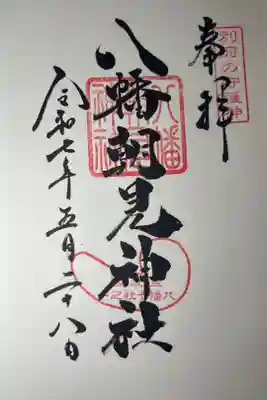 奉拝
別府の守護神
八幡朝見神社
令和七年五月二十八日